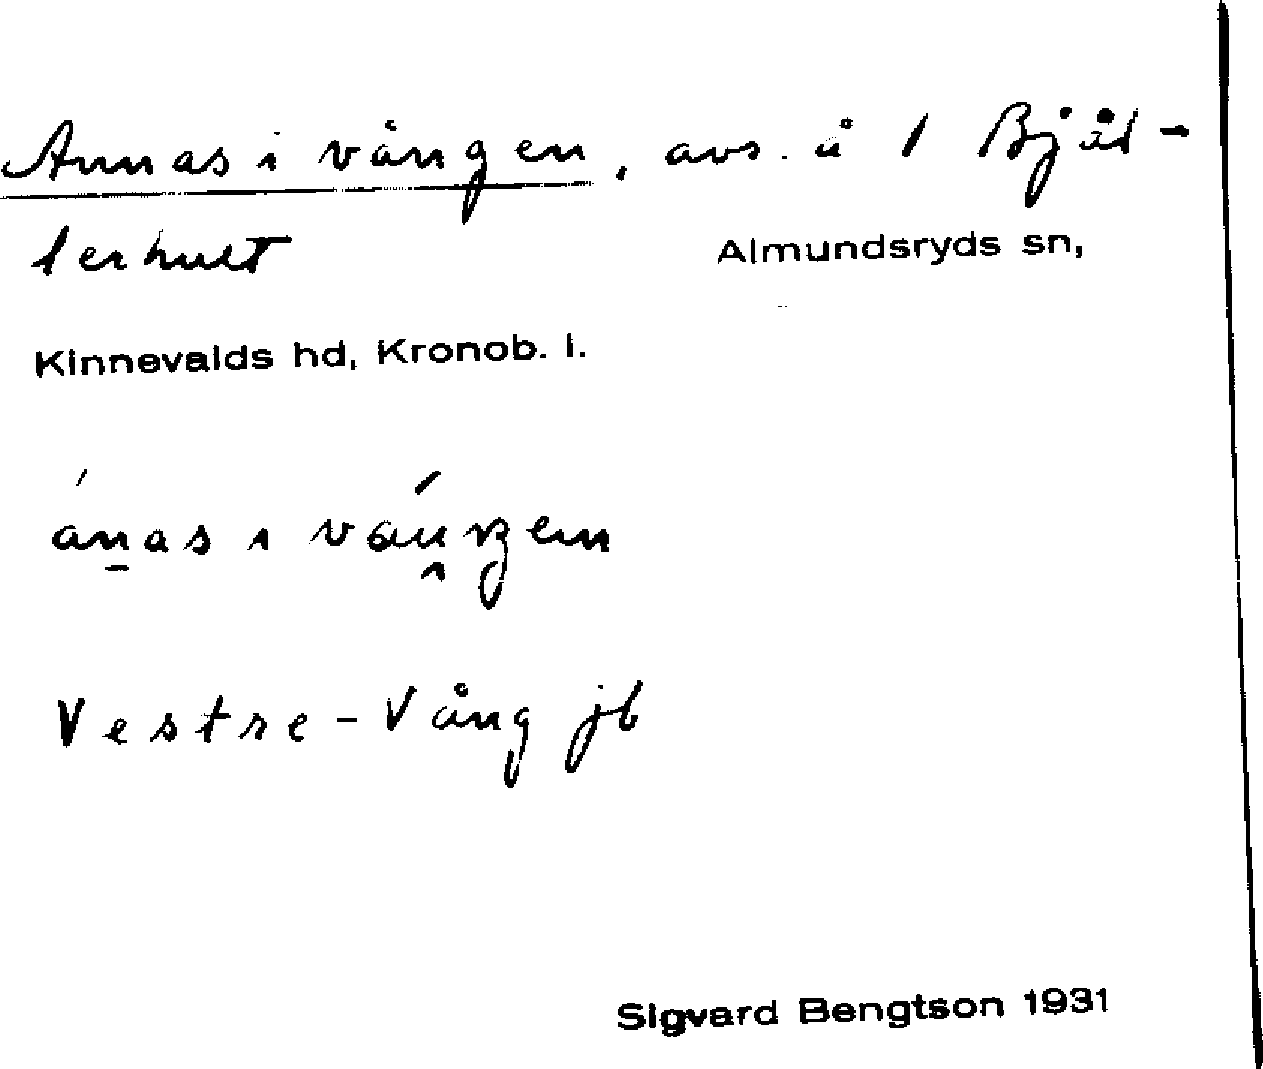 Annas i vången, avs. å 1 Bjäl-
lerhult
Almundsryds sn,
Kinnevalds hd, Kronob. l.
ánas i
Vestre-Vång jb
Sigvard Bengtson 1931